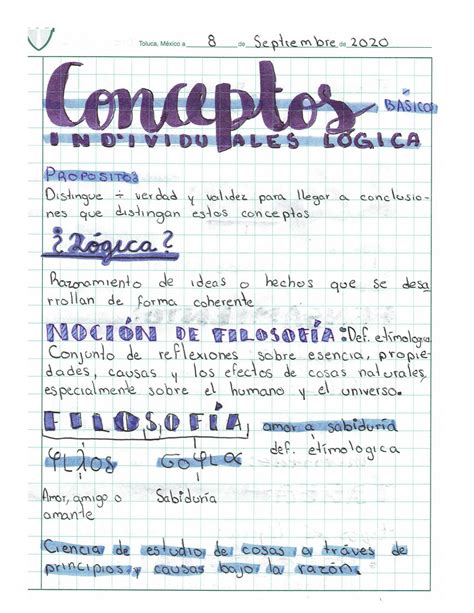 Toluca, México a 8 de Septiembre de 2020
Conceptos BÁSICOS
INDIVIDUALES LÓGICA
PROPOSITO:
Distingue ÷ verdad y validez para llegar a conclusio-
nes que distingan estos conceptos
¿Lógica?
Razonamiento de ideas o hechos que se desa
rrollan de forma coherente
NOCIÓN DE FILOSOFÍA: Def. etimologica
Conjunto de reflexiones sobre esencia, propie-
dades, causas y los efectos de cosas naturales,
especialmente sobre el humano y el universo.
FILOSOFÍA, amor a sabiduría
def. etimologica
Amor, amigo o Sabiduría
amante
Ciencia de estudio de cosas a tráves de
principios y causas bajo la razón.